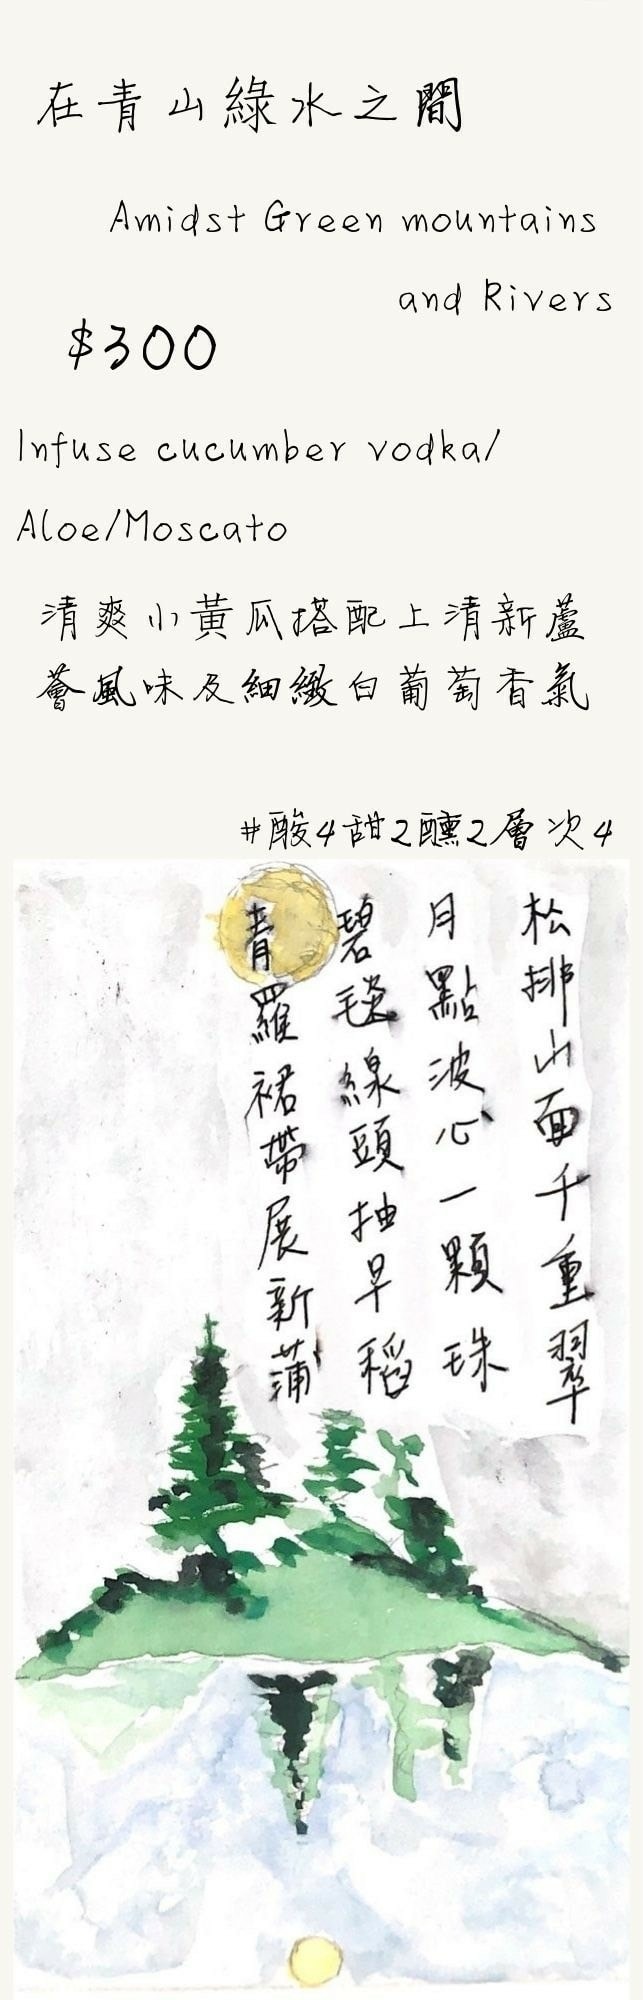 在青山綠水之間
Amidst Green mountains
and Rivers
$300
Infuse cucumber vodka/
Aloe/Moscato
清爽小黃瓜搭配上清新蘆
薈風味及細緻白葡萄香氣
#酸4甜2醺2層次4
松排山面千重翠
月點波心一顆珠
碧毯線頭抽早稻
青羅裙帶展新蒲